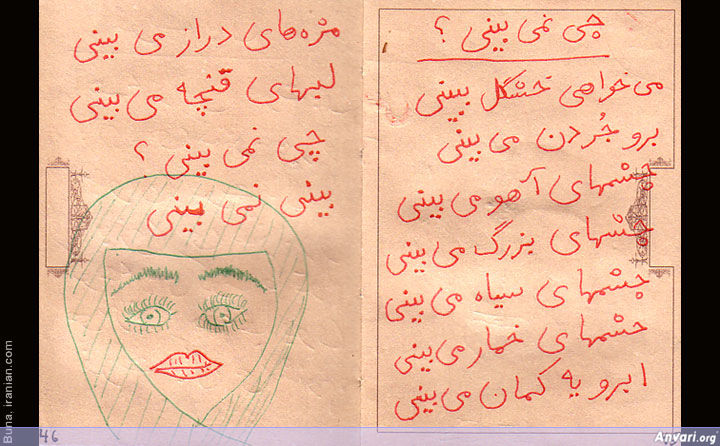 چی نمی بینی ؟
می خواهی خشگل ببینی
برو جُردن می بینی
چشمهای آهو می بینی
چشمهای بزرگ می بینی
چشمهای سیاه می بینی
چشمهای خمار می بینی
ابرو یه کمان می بینی
مژه های دراز می بینی
لبهای قنچه می بینی
چی نمی بینی ؟
بینی نمی بینی
46
Buna, iranian.com
Anvari.org